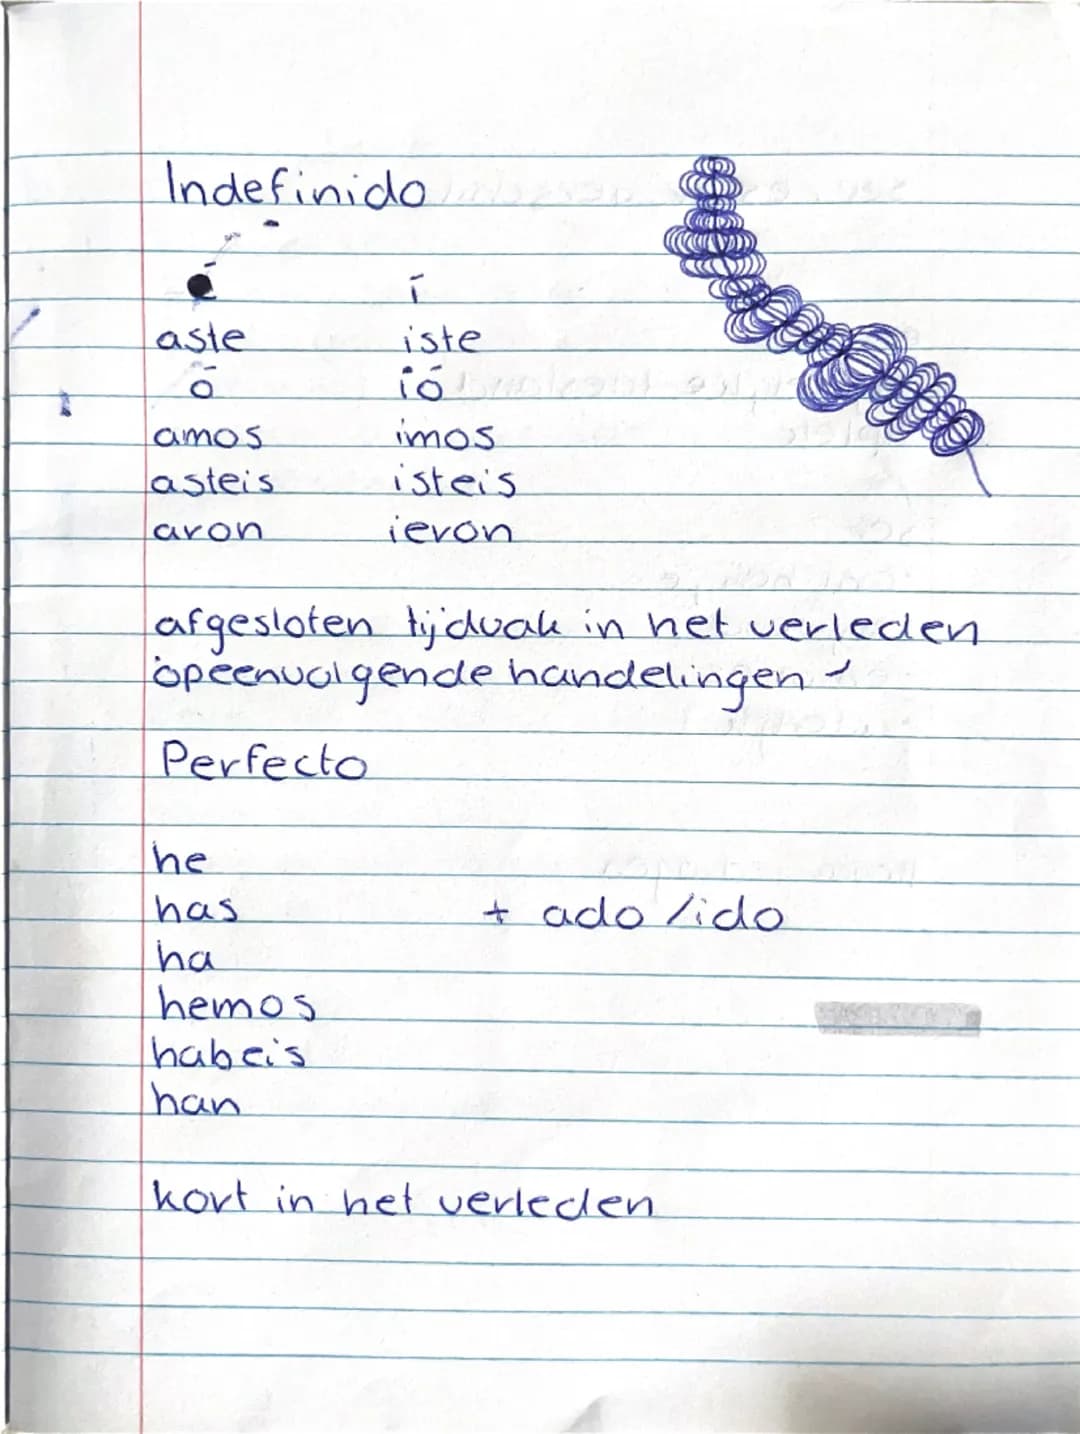 Indefinido
é í
aste iste
ó ió
amos imos
asteis isteis
aron ieron
afgesloten tijdvak in het verleden
opeenvolgende handelingen
Perfecto
he
has + ado / ido
ha
hemos
habeis
han
kort in het verleden